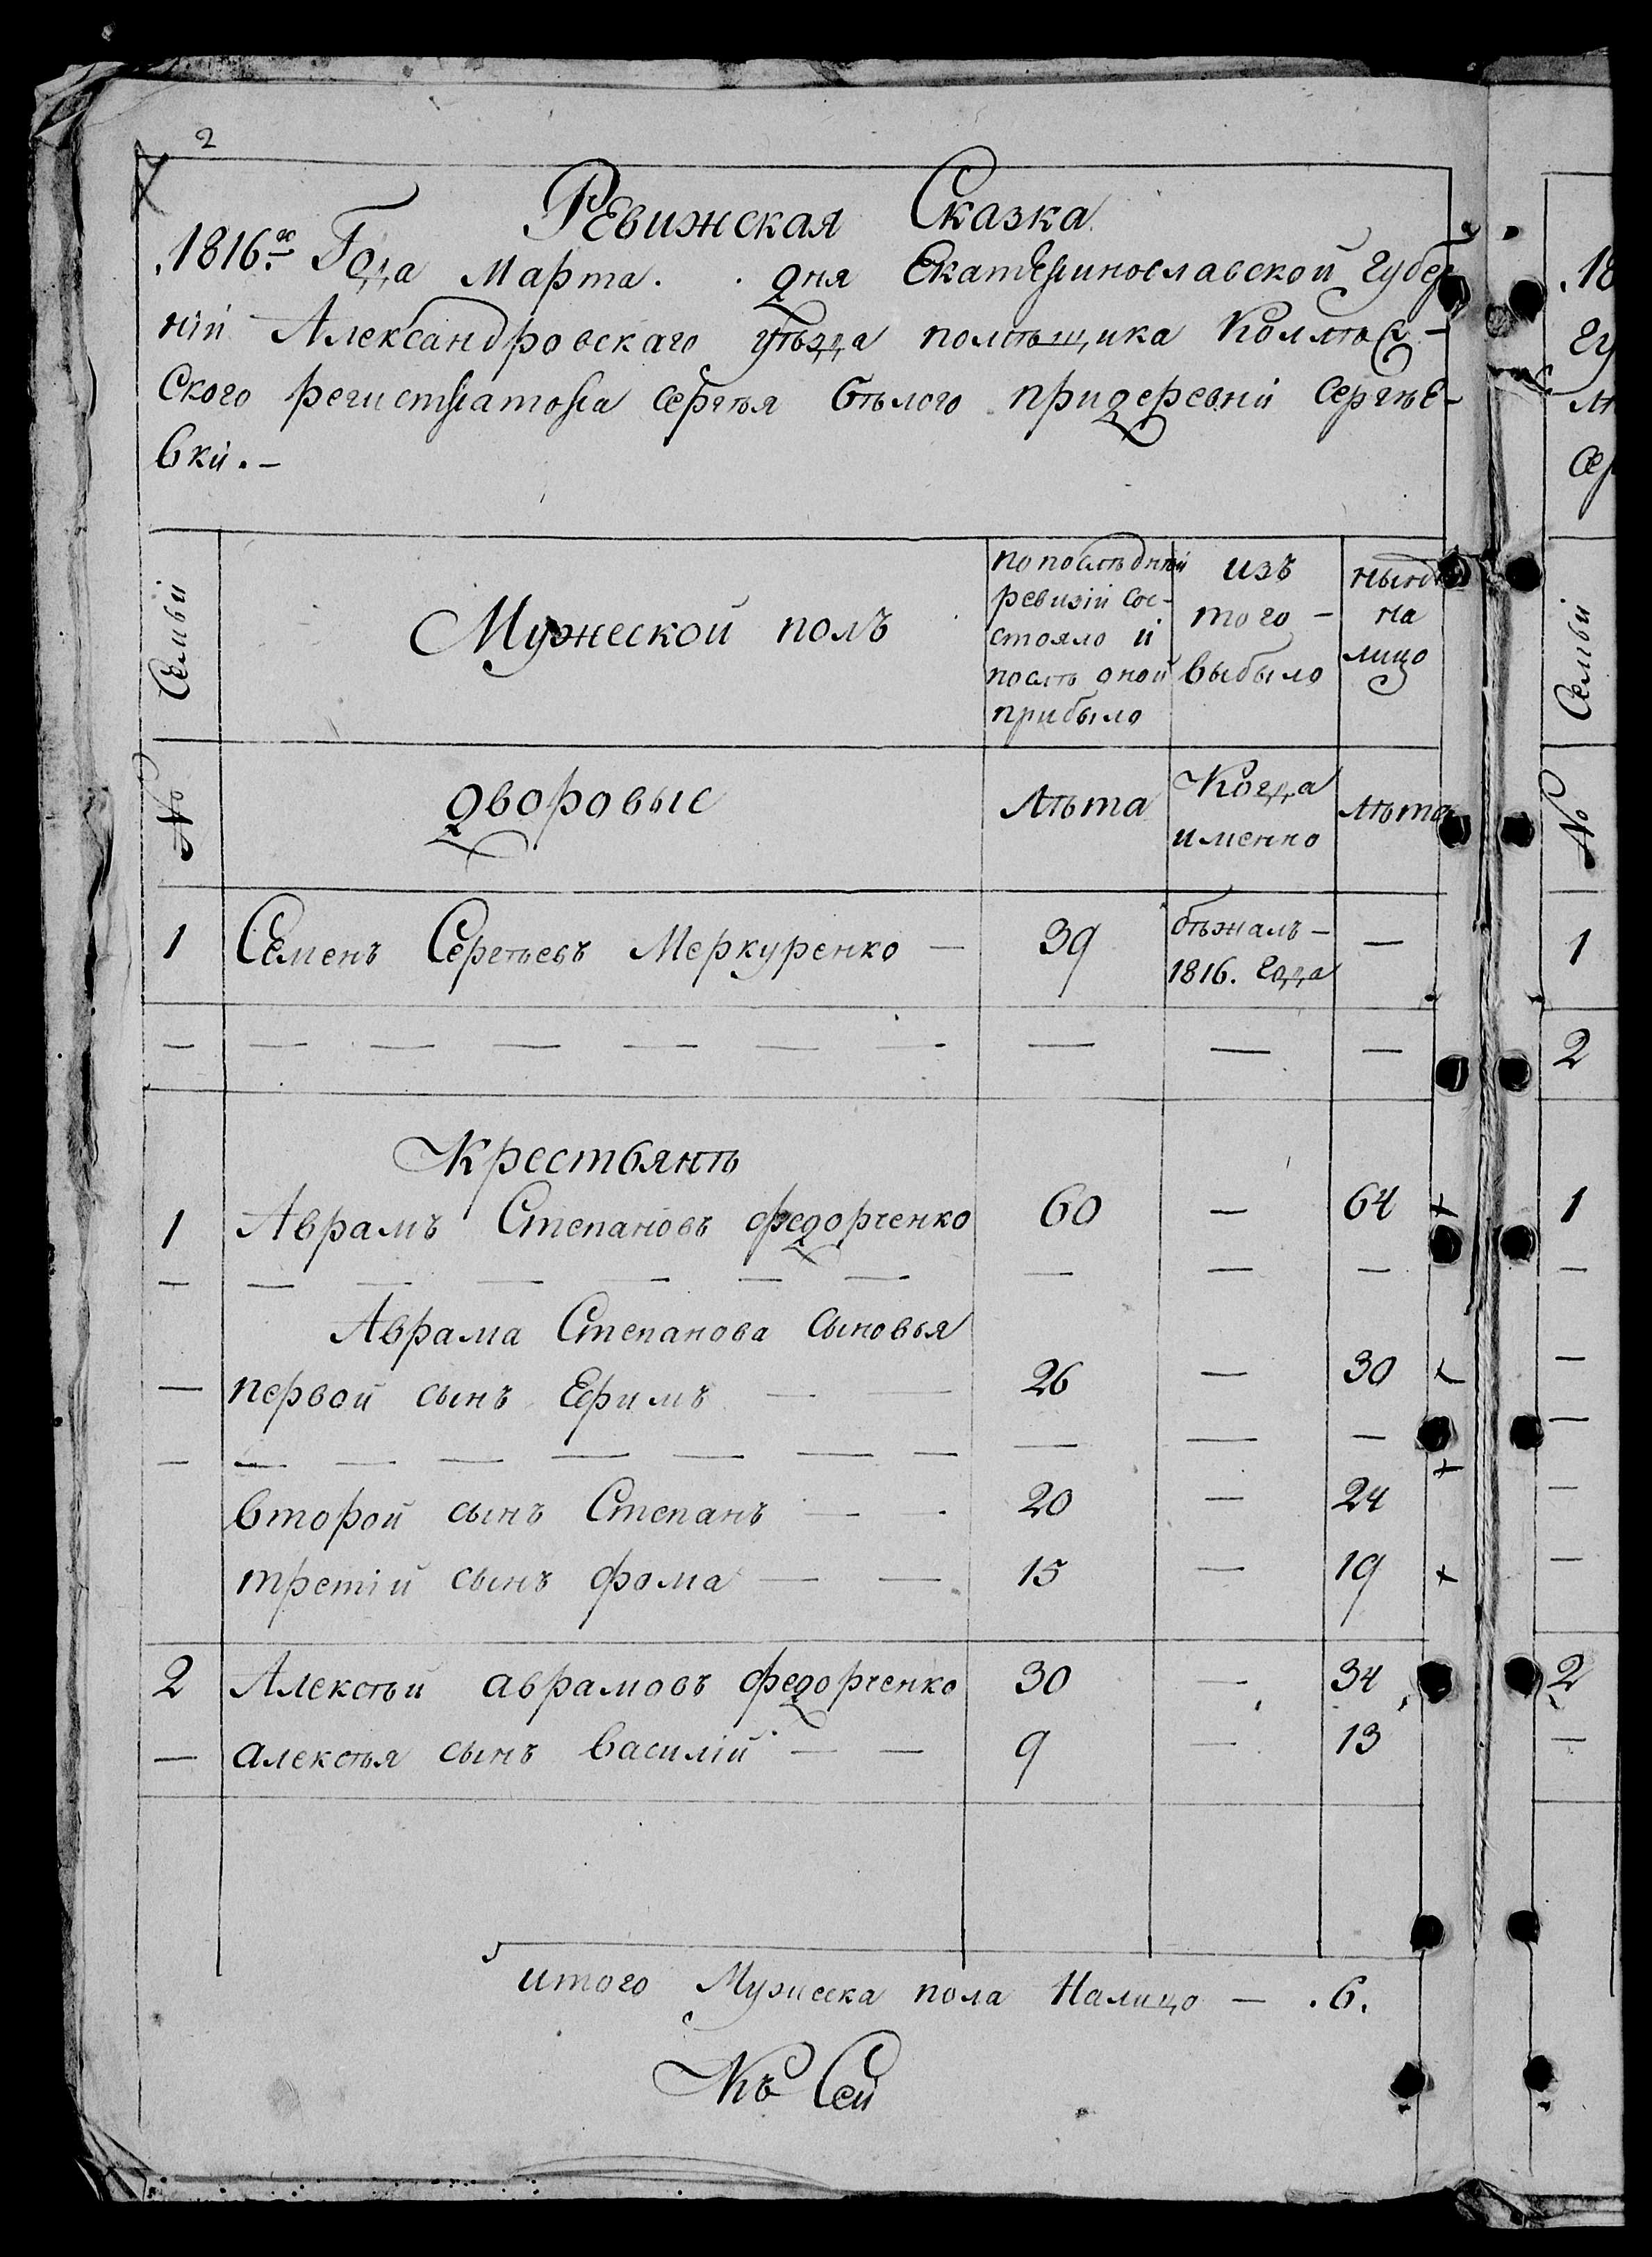 2
Ревижская Сказка
1816го Года Марта . . дня Екатеринославской губер
ніи Александровскаго уѣзда помѣщика Коллѣж-
ского регистратора Сергѣя Бѣлого придеревни Сергѣе-
вки. –
№ Семьи | Мужеской полъ | попослѣдней ревизіи сос-
стояло и
послѣ оной
прибыло | изъ
того –
выбыло | нынѣ
на
лицо
дворовые | Лѣта | Когда
именно | лѣта
1 Семенъ Сергѣевъ Меркуренко — 39 бѣжалъ –
1816. года —
— — — — — — — — — —
Крестьянѣ
1 Аврамъ Степановъ Федорченко 60 — 64
— — — — — — — — — —
Аврама Степанова сыновья
— первой сынъ Ефимъ — — 26 — 30
— — — — — — — — — — —
второй сынъ Степанъ — - 20 — 24
третіи сынъ Фома — — 15 — 19
2 Алексѣй аврамовъ Федорченко 30 — 34
— алексѣя сынъ Василій — — 9 — 13
итого Мужеска пола Налицо — . 6.
Къ Сей
18
гу
Сер
№ Семьи
1
2
1
—
—
—
—
—
2
—